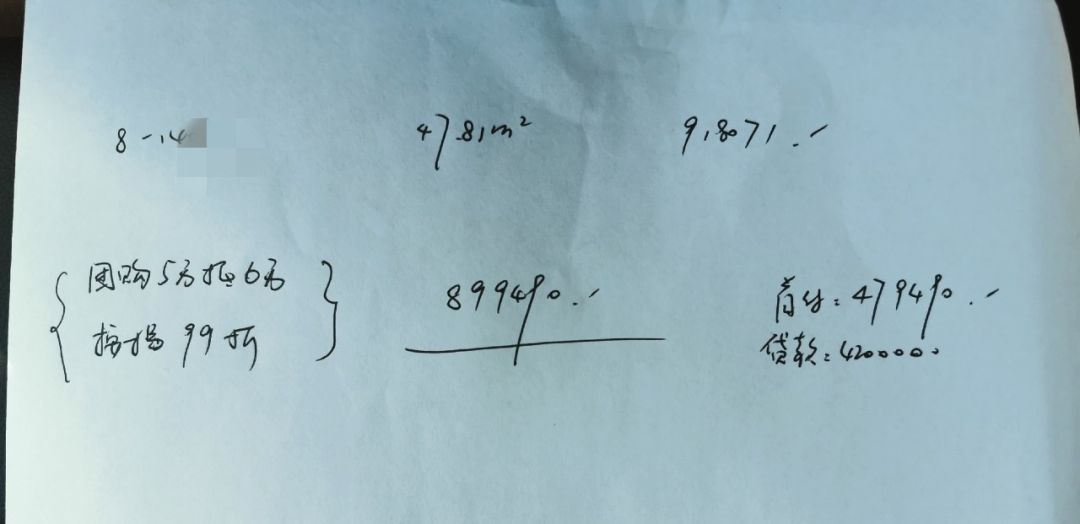 8-14 47.81m² 918071.-
团购5万抵6万 899490.- 首付:479490.-
按揭99折 贷款:420000.